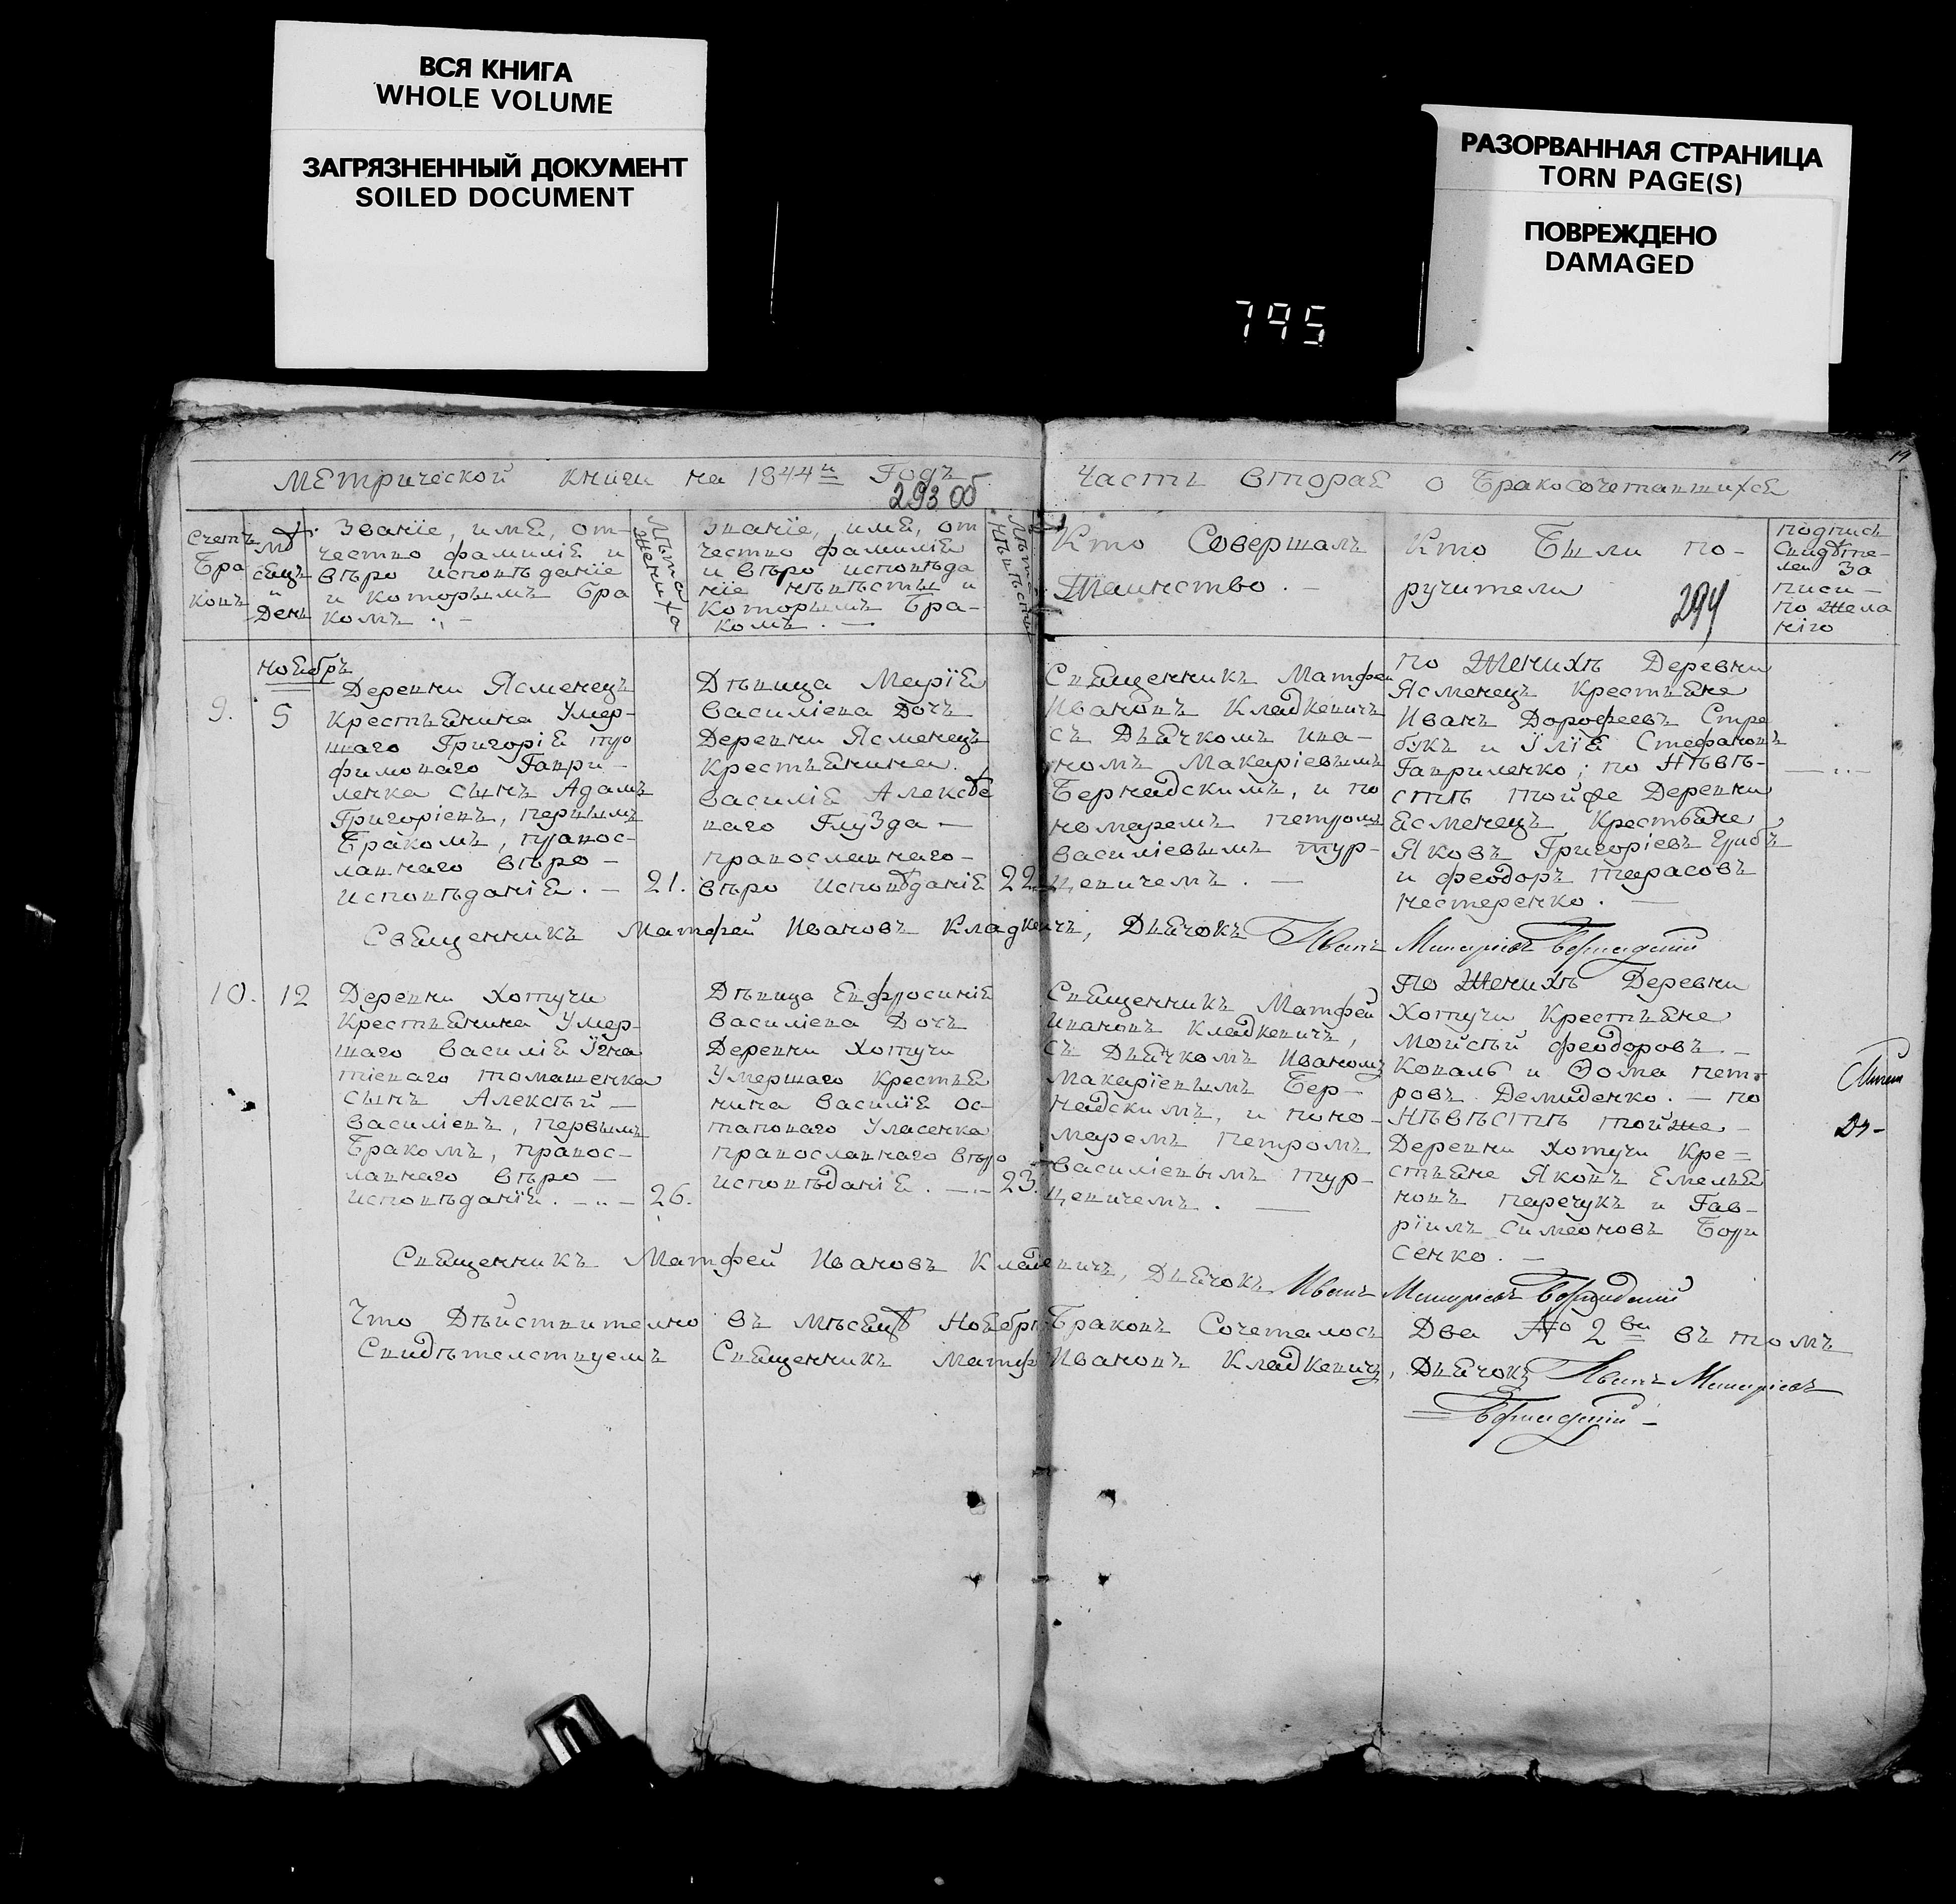 ВСЯ КНИГА
WHOLE VOLUME
ЗАГРЯЗНЕННЫЙ ДОКУМЕНТ
SOILED DOCUMENT
РАЗОРВАННАЯ СТРАНИЦА
TORN PAGE(S)
ПОВРЕЖДЕНО
DAMAGED
795
Метрической книги на 1844й Годъ
293 об
Часть вторая о Бракосочетавшихся
Счетъ
Бра
ковъ
Мѣ
сяцъ
и
День
Званіе, имя, от-
чество фамилія и
вѣро исповѣданіе
и которымъ Бра
комъ. -
Лѣта
жениха
Званіе, имя, от
чество фамилія
и вѣро исповѣда
ніе невѣсты и
которымъ Бра-
комъ. —
Лѣта
невѣсты
Кто Совершалъ
Таинство. -
Кто Были по-
ручители
294
подпись
Свидѣте-
лей за
писи -
по жела
нію
9.
ноябрь
5
Деревни Ясменецъ
Крестьянина Умер-
шаго Григорія тро
фимоваго Гаври-
ленка сынъ Адамъ
Григоріевъ, первымъ
Бракомъ, правос-
лавнаго вѣро -
исповѣданія. -
21.
Дѣвица Марія
Василіева Дочь
Деревни Ясменецъ
Крестьянина
Василія Алексѣе
ваго Глузда -
православнаго -
вѣро исповѣданія
22
Священникъ Матфей
Ивановъ Кладкевичъ
съ Дьячкомъ ива-
номъ Макаріевымъ
Бернадскимъ, и по
номаремъ петромъ
василіевымъ тур-
цевичемъ. —
по Женихѣ Деревни
Ясменецъ Крестьяне
Иванъ Дорофеевъ Стре
букъ и Илія Стефановъ
Гавриленко; по Невѣ-
стѣ тойже Деревни
Ясменецъ Крестьяне
Яковъ Григоріевъ Грибъ
и феодоръ тарасовъ
нестеренко. —
Священникъ Матфей Ивановъ Кладкевичъ, Дьячокъ Иванъ Макаріевъ Бернадскій
10.
12
Деревни Хотучи
Крестьянина Умер-
шаго Василія Игна
тіеваго томашенка
сынъ Алексѣй -
Василіевъ, первымъ
Бракомъ, правос-
лавнаго вѣро -
исповѣданія. -
26.
Дѣвица Евфросинія
Василіева Дочь
Деревни Хотучи
Умершаго Крестья
нина Василія ос-
таповаго Уласенка
православнаго вѣро
исповѣданія. -
23.
Священникъ Матфей
Ивановъ Кладкевичъ,
съ Дьячкомъ Иваномъ
Макаріевымъ Бер-
надскимъ, и поно-
маремъ петромъ
василіевымъ тур-
цевичемъ. —
По Женихѣ Деревни
Хотучи Крестьяне
Мойсѣй феодоровъ -
Коваль и Ѳома пет
ровъ Демиденко. - по
Невѣстѣ тойже -
Деревни Хотучи Кре-
стьяне Яковъ Емелья
новъ паречукъ и Гав-
ріилъ Симеоновъ Бори
сенко. —
Священникъ Матфей Ивановъ Кладкевичъ, Дьячокъ Иванъ Макаріевъ Бернадскій
Что Дѣйствительно въ Мѣсяцѣ Ноябрѣ Браковъ Сочеталось Два № 2ва въ томъ
Свидѣтелствуемъ Священникъ Матф Ивановъ Кладкевичъ, Дьячокъ Иванъ Макаріевъ
Бернадскій -